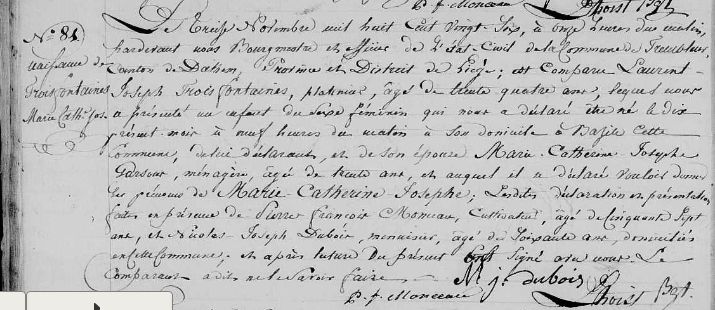 P. f. Monceau
Nº 81
naissance de
Troisfontaines
Marie Cath. Jos.
Le treize Novembre mil huit Cent Vingt-Six, à onze heures du matin,
pardevant nous Bourgmestre et officier de l'état-Civil de la Commune de Trembleur,
Canton de Dalhem, Province et District de Liège; est Comparu Laurent-
Joseph Troisfontaines, platineur, agé de trente quatre ans, lequel nous
a présenté un enfant du Sexe féminin qui nous a déclaré être né le dix
présent mois à neuf heures du matin à son domicile à cette
Commune, de lui déclarant, et de son épouse Marie-Catherine Josephe
ménagère, agée de trente ans, et auquel il a déclaré vouloir donner
les prénoms de Marie-Catherine Josephe; Lesdites déclaration et présentation
faites en présence de Pierre François Monceau, Cultivateur, agé de Cinquante Sept
ans, et Nicolas Joseph Dubois, menuisier, agé de Soixante ans, domiciliés
en cette Commune; et après lecture du présent ont Signé avec nous. Le
Comparant a dit ne le Savoir faire
N. j. dubois
P. f. Monceau